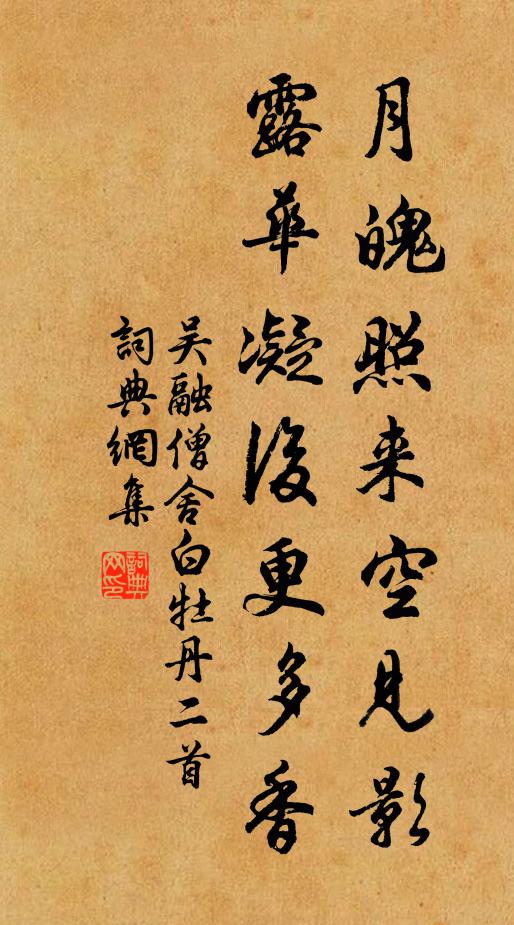 月魄照来空見影
露華凝後更多香
吴融僧舍白牡丹二首
詞典網集
詞典網印